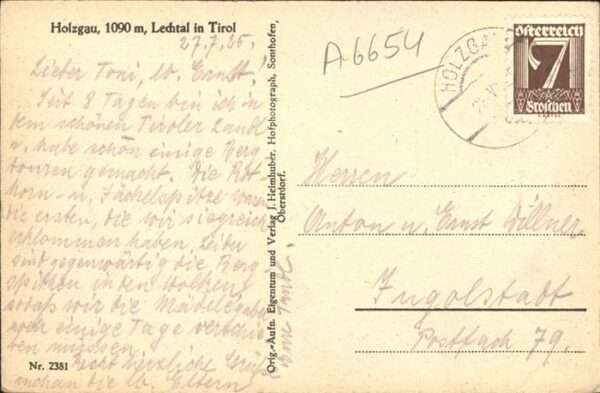 Holzgau, 1090 m, Lechtal in Tirol
27.7.25.
Lieber Toni, lb. Ernst!
Seit 8 Tagen bin ich in
dem schönen Tiroler Landl
u. habe schon einige Berg
touren gemacht. Die Rot
horn- u. Jöchelspitze waren
die ersten, die wir siegreich
erklommen haben. Leider
sind gegenwärtig die Berg
spitzen in den Wolken
sodaß wir die Mädelegabel
noch einige Tage verschie
ben müssen.
Recht herzliche Grüße
die lb. Eltern
Eure Tante
Nr. 2381
Orig.-Aufn. Eigentum und Verlag J. Heimhuber, Hofphotograph, Sonthofen,
Oberstdorf.
A6654
HOLZG
Österreich
7
Groschen
Herren
Anton u. Ernst Dillner
Ingolstadt
Postfach 79.